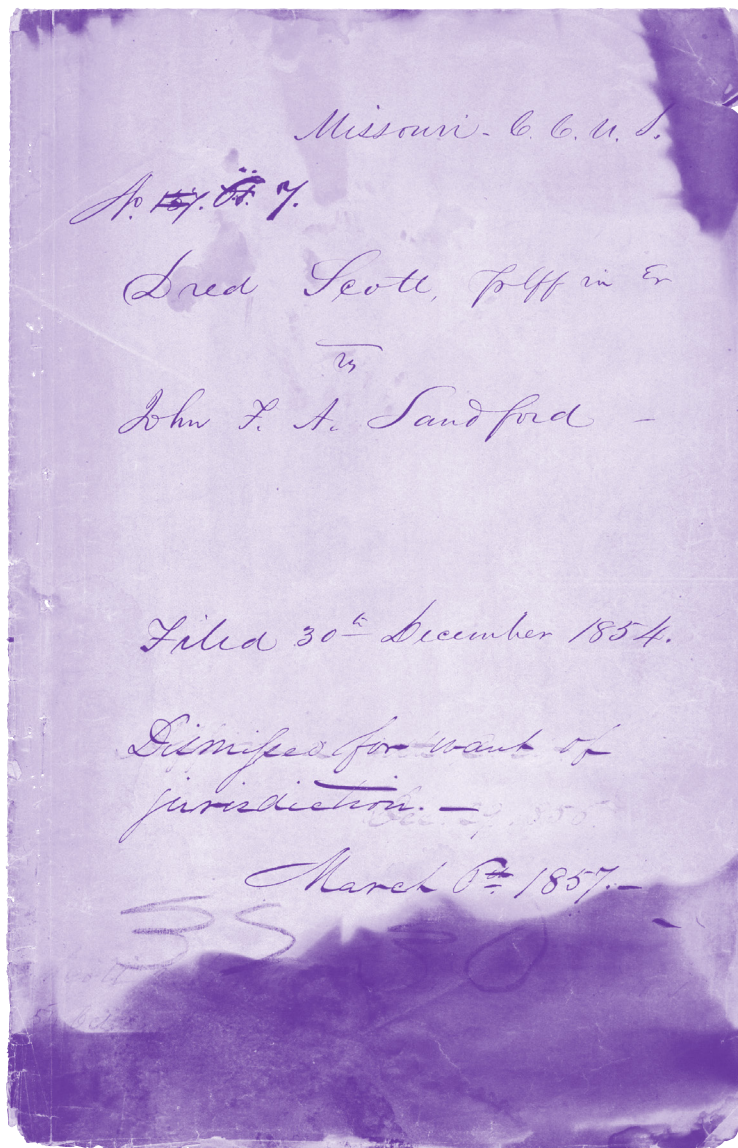 Missouri - C. C. U. S.
No. 7.
Dred Scott, Plff in Er
vs
John F. A. Sandford -
Filed 30th December 1854.
Dismissed for want of
jurisdiction. -
March 6th 1857. -
35 30